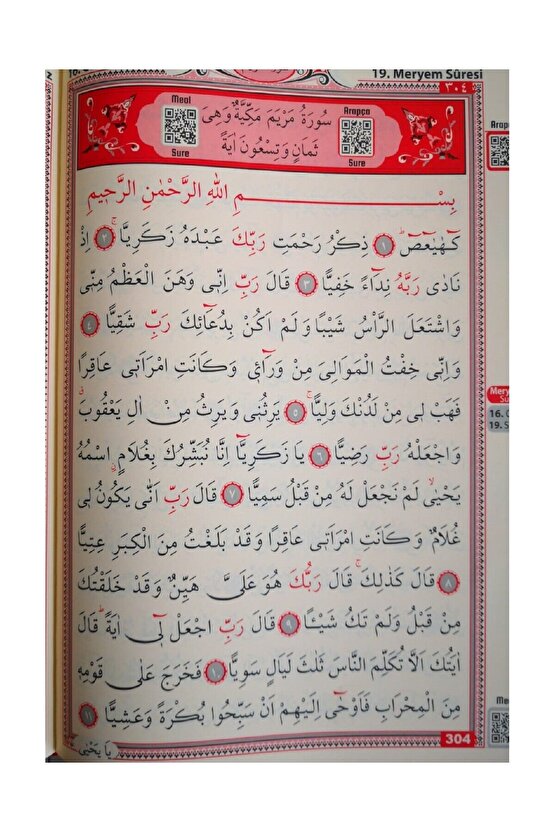 19. Meryem Sûresi
٣٠٤
Meal
Sure
سُورَةُ مَرْيَمَ مَكِّيَّةٌ وَهِىَ
ثَمَانٍ وَتِسْعُونَ اٰيَةً
Arapça
Sure
بِسْمِ اللّٰهِ الرَّحْمٰنِ الرَّحٖيمِ
كٓهٰيٰعٓصٓ ١ ذِكْرُ رَحْمَتِ رَبِّكَ عَبْدَهُ زَكَرِيَّا ٢ اِذْ
نَادٰى رَبَّهُ نِدَٓاءً خَفِيًّا ٣ قَالَ رَبِّ اِنّٖى وَهَنَ الْعَظْمُ مِنّٖى
وَاشْتَعَلَ الرَّاْسُ شَيْبًا وَلَمْ اَكُنْ بِدُعَٓائِكَ رَبِّ شَقِيًّا ٤
وَاِنّٖى خِفْتُ الْمَوَالِىَ مِنْ وَرَٓائٖى وَكَانَتِ امْرَاَتٖى عَاقِرًا
فَهَبْ لٖى مِنْ لَدُنْكَ وَلِيًّا ٥ يَرِثُنٖى وَيَرِثُ مِنْ اٰلِ يَعْقُوبَ
وَاجْعَلْهُ رَبِّ رَضِيًّا ٦ يَا زَكَرِيَّٓا اِنَّا نُبَشِّرُكَ بِغُلَامٍ اسْمُهُ
يَحْيٰى لَمْ نَجْعَلْ لَهُ مِنْ قَبْلُ سَمِيًّا ٧ قَالَ رَبِّ اَنّٰى يَكُونُ لٖى
غُلَامٌ وَكَانَتِ امْرَاَتٖى عَاقِرًا وَقَدْ بَلَغْتُ مِنَ الْكِبَرِ عِتِيًّا
٨ قَالَ كَذٰلِكَ قَالَ رَبُّكَ هُوَ عَلَىَّ هَيِّنٌ وَقَدْ خَلَقْتُكَ
مِنْ قَبْلُ وَلَمْ تَكُ شَيْـًٔا ٩ قَالَ رَبِّ اجْعَلْ لٖٓى اٰيَةً قَالَ
اٰيَتُكَ اَلَّا تُكَلِّمَ النَّاسَ ثَلٰثَ لَيَالٍ سَوِيًّا ١٠ فَخَرَجَ عَلٰى قَوْمِهٖ
مِنَ الْمِحْرَابِ فَاَوْحٰٓى اِلَيْهِمْ اَنْ سَبِّحُوا بُكْرَةً وَعَشِيًّا ١١
304
يَا يَحْيٰى